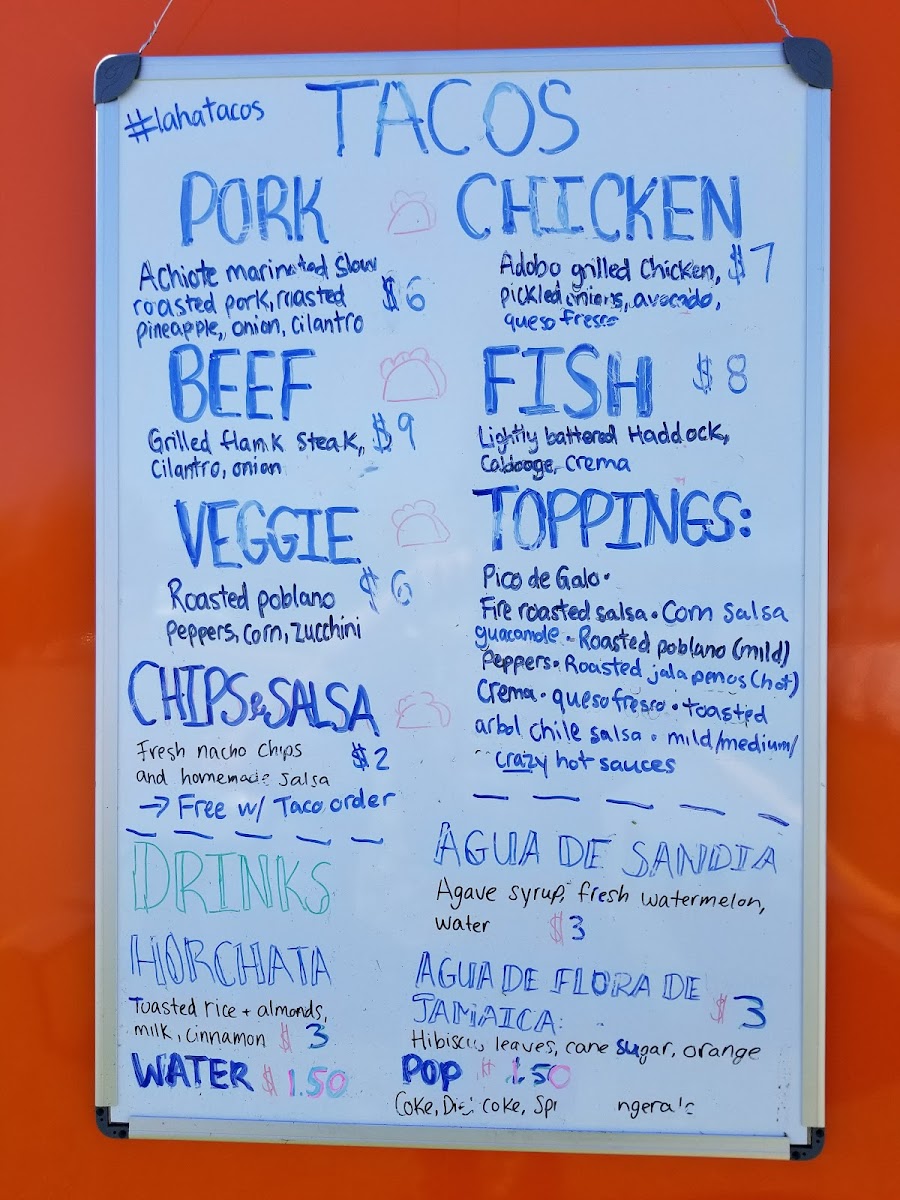 #lahatacos
TACOS
PORK
Achiote marinated slow
roasted pork, roasted
pineapple, onion, cilantro
$6
CHICKEN
Adobo grilled Chicken,
pickled onions, avocado,
queso fresco
$7
BEEF
Grilled flank steak,
cilantro, onion
$9
FISH $8
Lightly battered Haddock,
Cabbage, crema
VEGGIE
Roasted poblano
peppers, corn, zucchini
$6
TOPPINGS:
Pico de Galo •
Fire roasted salsa • Corn salsa
guacamole • Roasted poblano (mild)
Peppers • Roasted jalapenos (hot)
Crema • queso fresco • toasted
arbol chile salsa • mild/medium/
crazy hot sauces
CHIPS & SALSA
Fresh nacho chips
and homemade salsa
$2
→ Free w/ Taco order
DRINKS
HORCHATA
Toasted rice + almonds,
milk, cinnamon $3
WATER $1.50
AGUA DE SANDIA
Agave syrup, fresh watermelon,
water $3
AGUA DE FLORA DE
JAMAICA:
$3
Hibiscus leaves, cane sugar, orange
POP $1.50
Coke, Diet coke,